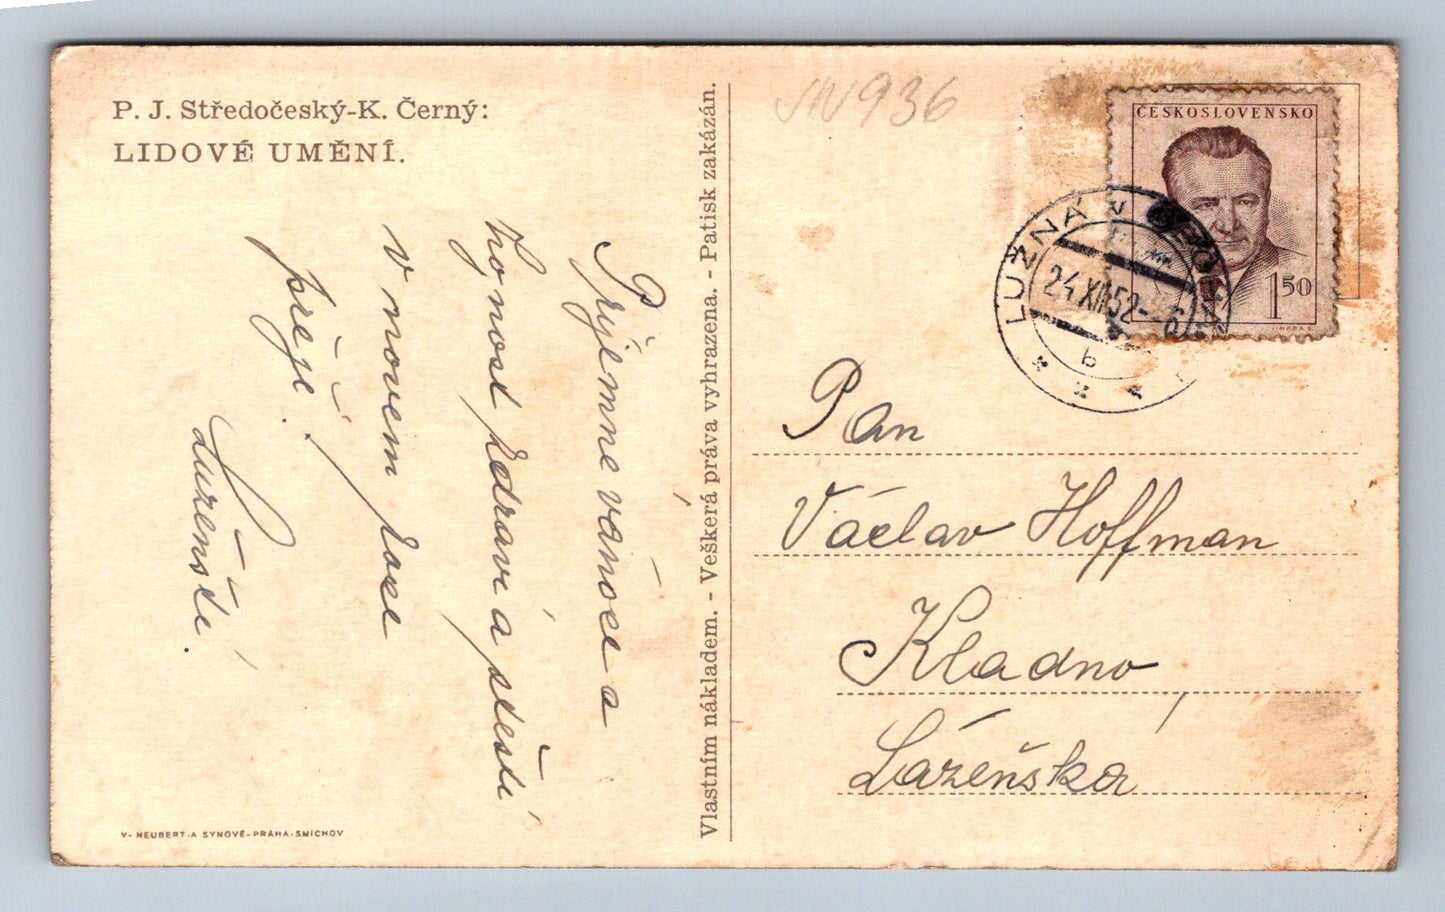 P. J. Středočeský-K. Černý:
LIDOVÉ UMĚNÍ.
Příjemne vánoce a
hojnost zdraví a štěstí
v novém roce
přeje.
Luženští.
V. NEUBERT A SYNOVÉ - PRAHA - SMÍCHOV
Vlastním nákladem. - Veškerá práva vyhrazena. - Patisk zakázán.
936
ČESKOSLOVENSKO
1 50
LUŽNÁ U
24.XII.52 - 6
b
Pan
Václav Hoffman
Kladno,
Lázeňská